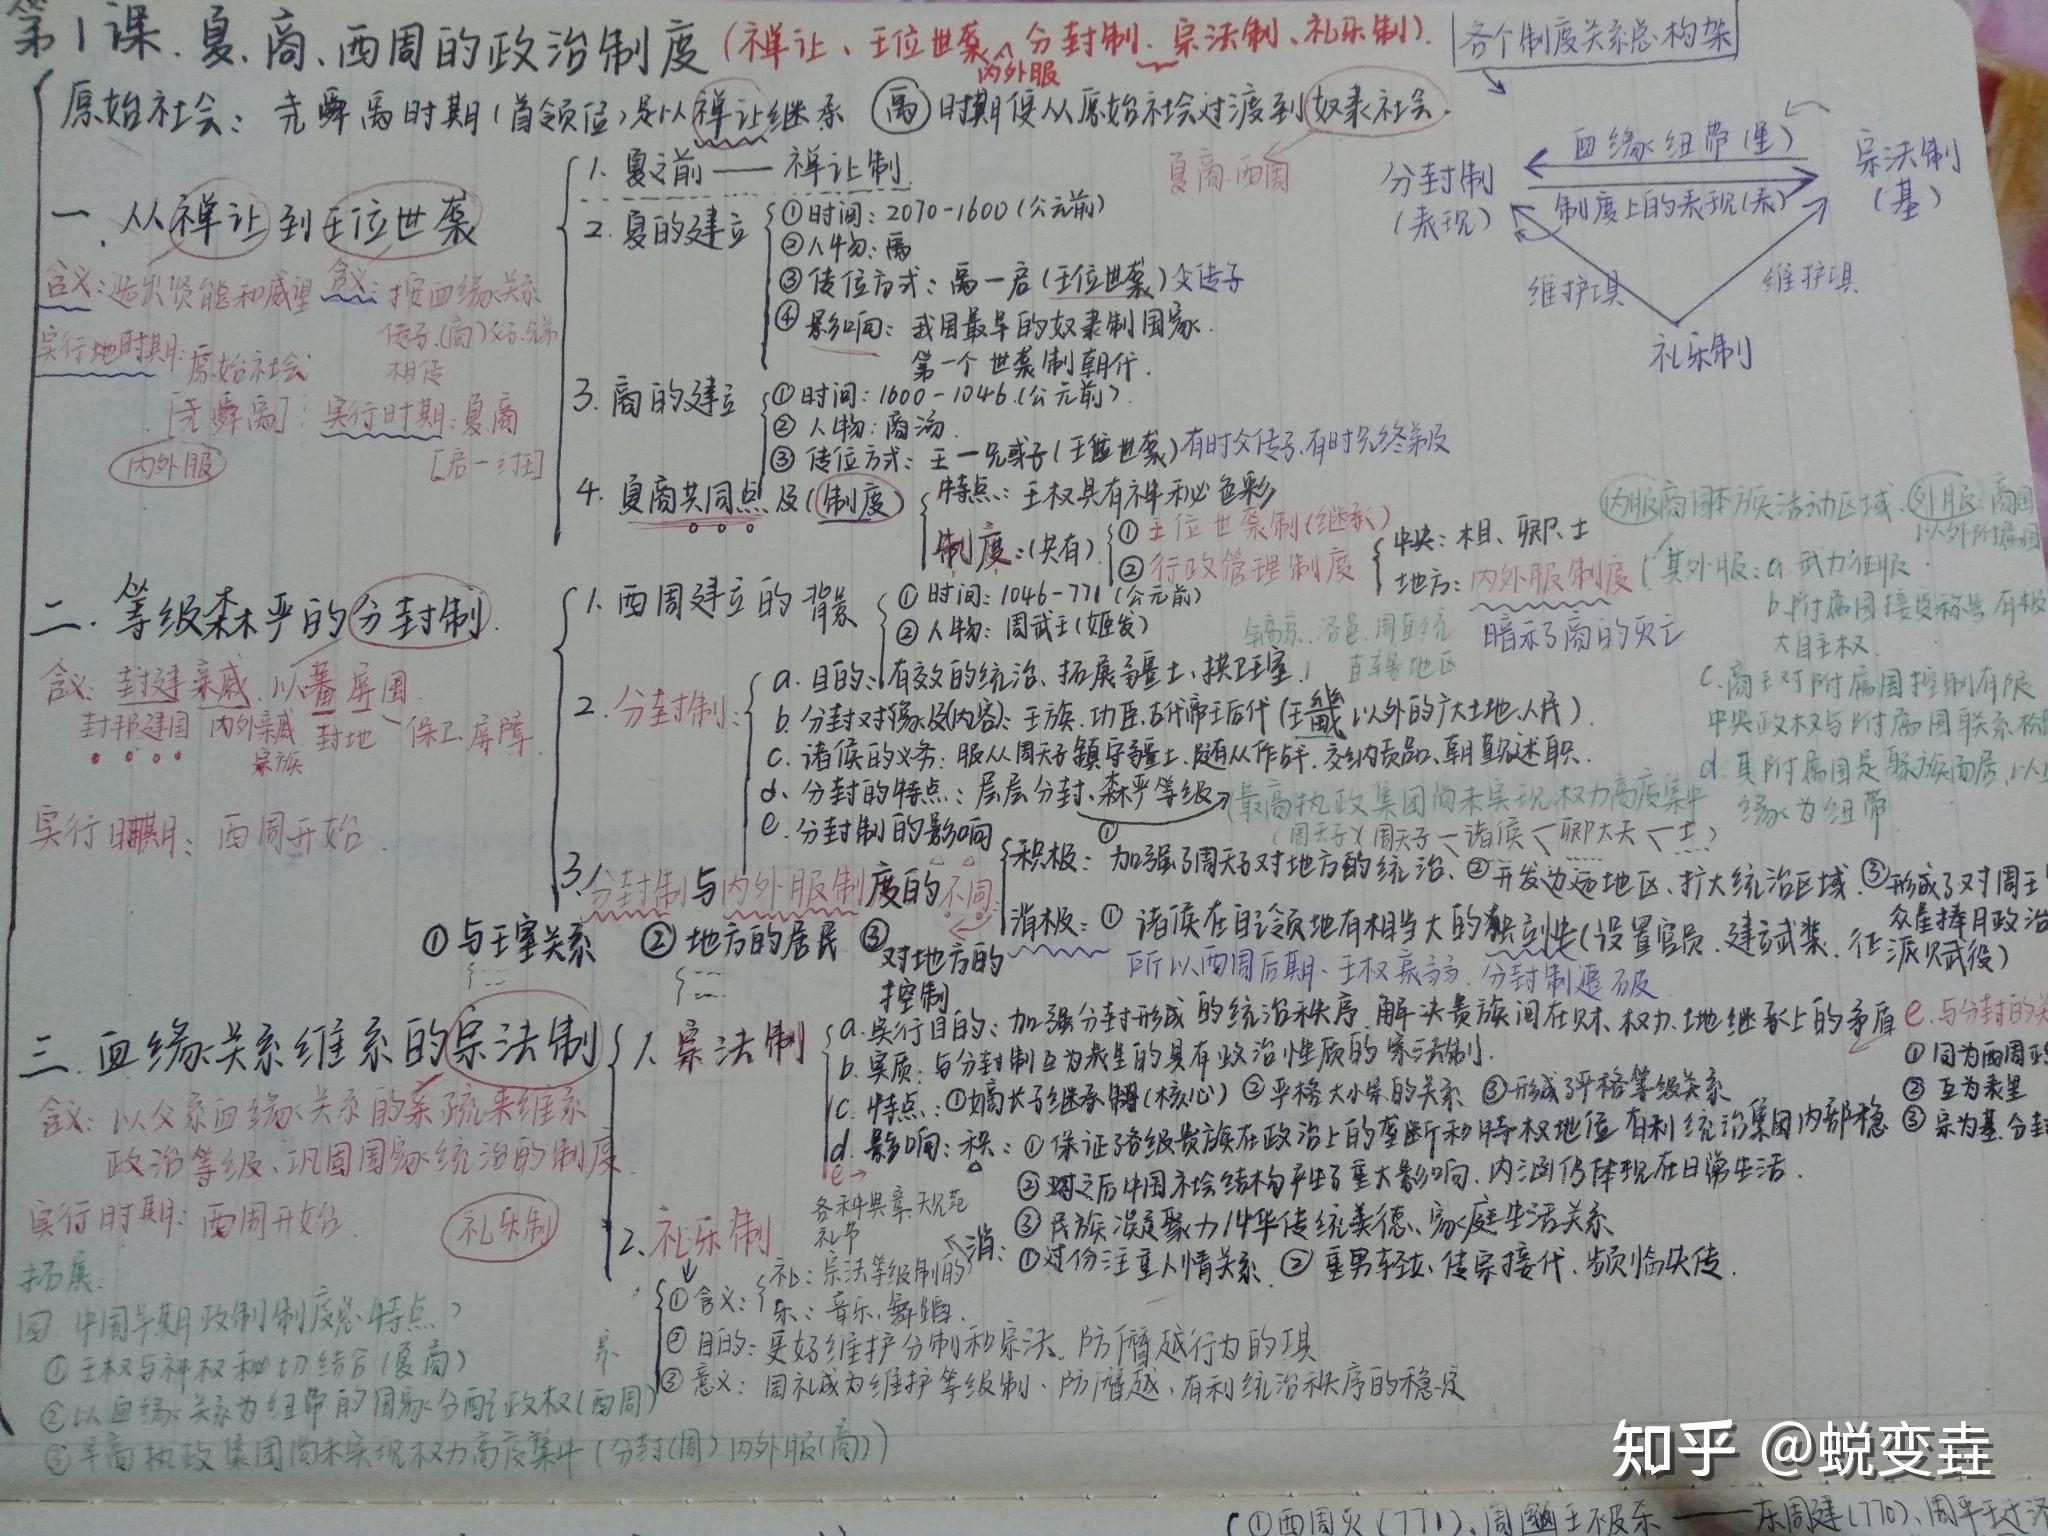 第1课.夏、商、西周的政治制度(禅让、王位世袭、分封制、宗法制、礼乐制).
内外服
各个制度关系总构架
原始社会: 尧舜禹时期(首领位)是以禅让继承 禹时期便从原始社会过渡到奴隶社会.
夏商西周
血缘纽带(里)
分封制
(表现)
宗法制
(基)
制度上的表现(表)
维护工具
维护工具
礼乐制
一、从禅让到王位世袭
含义:选出贤能和威望
实行时期:原始社会
[尧舜禹]
内外服
含义:按血缘关系
传子、(商)父子、兄弟
相传
实行时期:夏商
[启—纣王]
1. 夏之前——禅让制
2. 夏的建立
①时间:2070-1600(公元前)
②人物:禹
③传位方式:禹—启(王位世袭)父传子
④影响:我国最早的奴隶制国家.
第一个世袭制朝代.
3. 商的建立
①时间:1600-1046(公元前)
②人物:商汤.
③传位方式:王—兄或子(王位世袭)有时父传子、有时兄终弟及
4. 夏商共同点及(制度)
特点:王权具有神秘色彩
制度:(共有)
①王位世袭制(继承)
②行政管理制度
中央:相、卿、士
地方:内外服制度
暗示了商的灭亡
内服商国本族活动区域、外服:商国
以外附属国
其外服:a.武力征服
b.附属国接受称号有极
大自主权.
c.商王对附属国控制有限
中央政权与附属国联系松
d.其附属国是聚族而居,以
缘为纽带
二.等级森严的分封制.
含义:封建亲戚.以蕃屏周.
封邦建国 内外亲戚 封地 保卫屏障
宗族
实行时期:西周开始.
1. 西周建立的背景
①时间:1046-771(公元前)
②人物:周武王(姬发)
2. 分封制:
a. 目的:有效的统治、拓展疆土、拱卫王室.
b. 分封对象及(内容):王族、功臣、古代帝王后代(王畿以外的广大土地、人民).
c. 诸侯的义务:服从周天子镇守疆土、随从作战、交纳贡品、朝觐述职.
d. 分封的特点:层层分封、森严等级
最高执政集团尚未实现权力高度集中
(周天子)(周天子—诸侯—卿大夫—士)
e. 分封制的影响
积极:①加强了周天子对地方的统治、②开发边远地区、扩大统治区域.③形成了对周王
众星捧月政治
消极:①诸侯在自己领地有相当大的独立性(设置官员.建立武装、征派赋役)
所以西周后期、王权衰弱.分封制遭破.
3. 分封制与内外服制度的不同
①与王室关系 ②地方的居民 ③对地方的
控制
三.血缘关系维系的宗法制
含义:以父系血缘关系的亲疏来维系
政治等级、巩固国家统治的制度.
实行时期:西周开始.
礼乐制
1. 宗法制
a. 实行目的:加强分封形成的统治秩序.解决贵族间在财、权力、土地继承上的矛盾
b. 实质:与分封制互为表里的具有政治性质的宗法制.
c. 特点:①嫡长子继承制(核心) ②严格大小宗的关系 ③形成了严格等级关系
d. 影响:积:①保证了各级贵族在政治上的垄断和特权地位 有利统治集团内部稳
②对之后中国社会结构产生了重大影响、内涵仍体现在日常生活.
③民族凝聚力中华传统美德、家庭生活关系
消:①过份注重人情关系.②重男轻女、传宗接代、
e.与分封的关
①同为西周政
②互为表里
③宗为基、分封
2. 礼乐制
各种典章规范
礼节
①含义:
礼:宗法等级制的
乐:音乐、舞蹈.
②目的:更好维护分制和宗法、防僭越行为的工具
③意义:周礼成为维护等级制、防僭越、有利统治秩序的稳定
拓展:
四.中国早期政制制度总特点
①王权与神权秘切结合(夏商)
②以血缘关系为纽带的国家分配政权(西周)
③早商执政集团尚未实现权力高度集中(分封(周)内外服(商))
(①西周灭(771)、周幽王被杀——东周建(770)、周平王
知乎 @蜕变垚